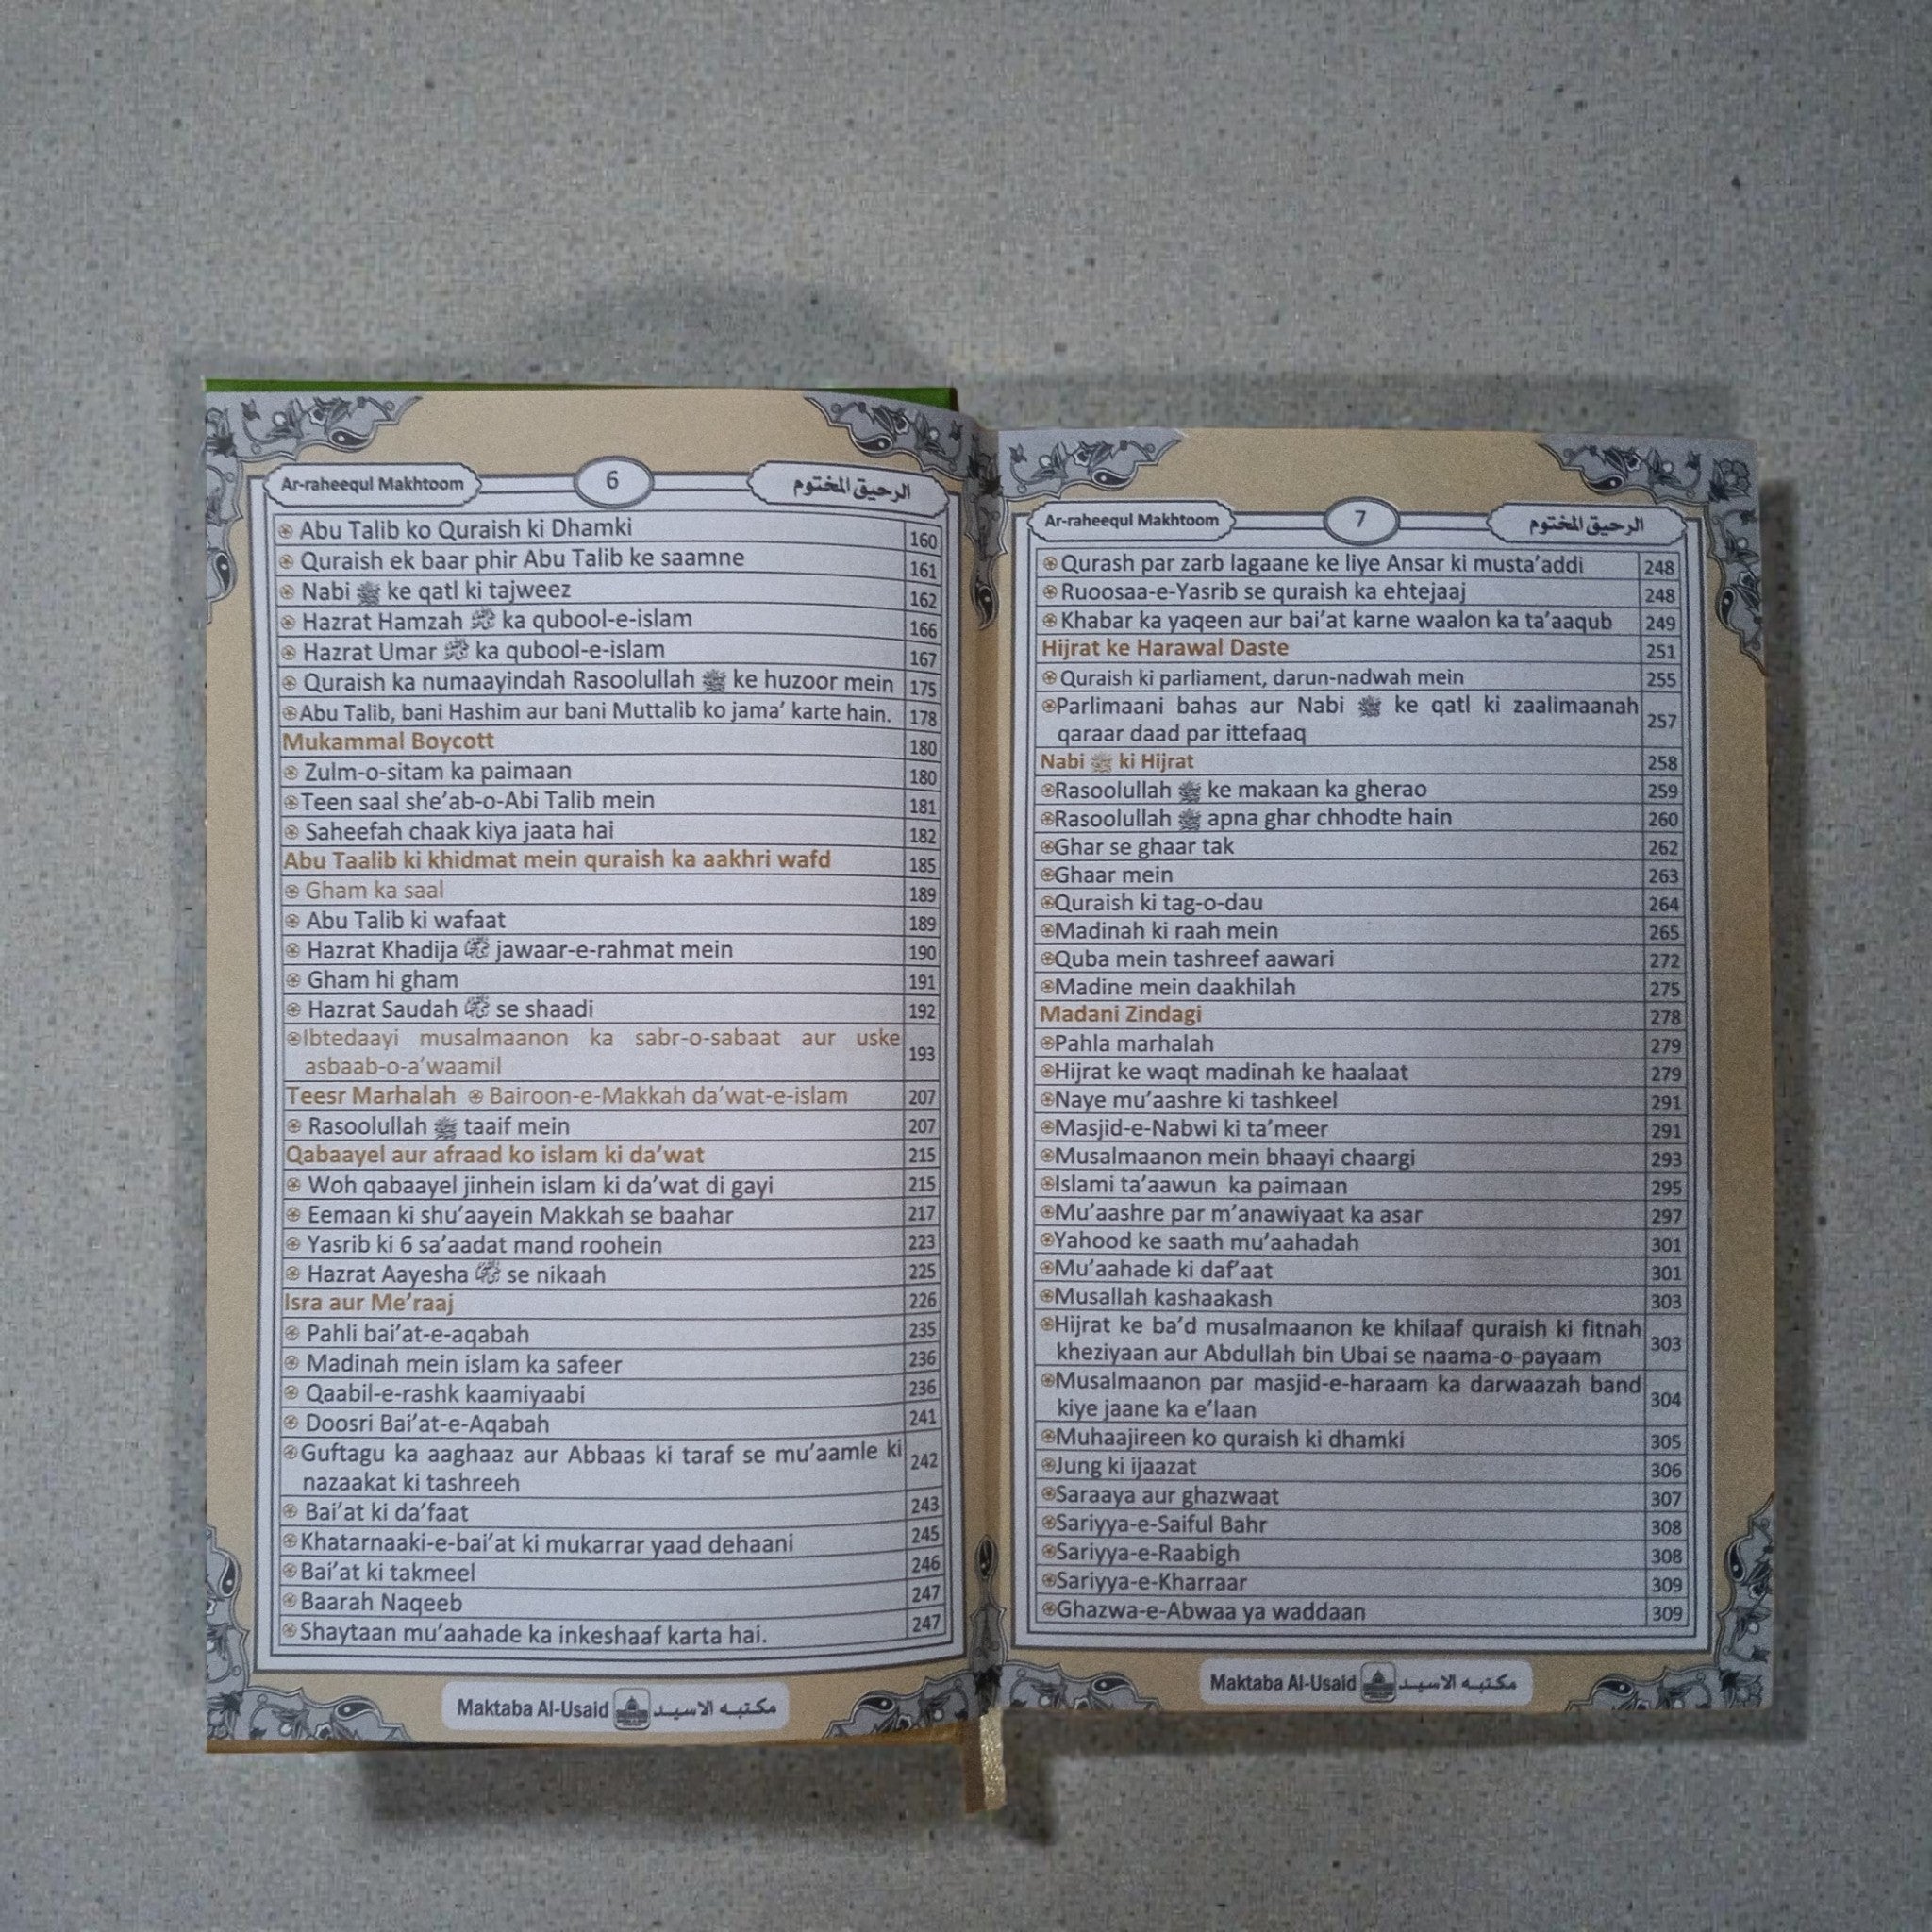 Ar-raheequl Makhtoom 6 الرحيق المختوم
Abu Talib ko Quraish ki Dhamki 160
Quraish ek baar phir Abu Talib ke saamne 161
Nabi ﷺ ke qatl ki tajweez 162
Hazrat Hamzah ؓ ka qubool-e-islam 166
Hazrat Umar ؓ ka qubool-e-islam 167
Quraish ka numaayindah Rasoolullah ﷺ ke huzoor mein 175
Abu Talib, bani Hashim aur bani Muttalib ko jama’ karte hain. 178
Mukammal Boycott 180
Zulm-o-sitam ka paimaan 180
Teen saal she’ab-o-Abi Talib mein 181
Saheefah chaak kiya jaata hai 182
Abu Taalib ki khidmat mein quraish ka aakhri wafd 185
Gham ka saal 189
Abu Talib ki wafaat 189
Hazrat Khadija ؓ jawaar-e-rahmat mein 190
Gham hi gham 191
Hazrat Saudah ؓ se shaadi 192
Ibtedaayi musalmaanon ka sabr-o-sabaat aur uske
asbaab-o-a’waamil 193
Teesr Marhalah Bairoon-e-Makkah da’wat-e-islam 207
Rasoolullah ﷺ taaif mein 207
Qabaayel aur afraad ko islam ki da’wat 215
Woh qabaayel jinhein islam ki da’wat di gayi 215
Eemaan ki shu’aayein Makkah se baahar 217
Yasrib ki 6 sa’aadat mand roohein 223
Hazrat Aayesha ؓ se nikaah 225
Isra aur Me’raaj 226
Pahli bai’at-e-aqabah 235
Madinah mein islam ka safeer 236
Qaabil-e-rashk kaamiyaabi 236
Doosri Bai’at-e-Aqabah 241
Guftagu ka aaghaaz aur Abbaas ki taraf se mu’aamle ki
nazaakat ki tashreeh 242
Bai’at ki da’faat 243
Khatarnaaki-e-bai’at ki mukarrar yaad dehaani 245
Bai’at ki takmeel 246
Baarah Naqeeb 247
Shaytaan mu’aahade ka inkeshaaf karta hai. 247
Maktaba Al-Usaid مكتبه الاسيد
Ar-raheequl Makhtoom 7 الرحيق المختوم
Qurash par zarb lagaane ke liye Ansar ki musta’addi 248
Ruoosaa-e-Yasrib se quraish ka ehtejaaj 248
Khabar ka yaqeen aur bai’at karne waalon ka ta’aaqub 249
Hijrat ke Harawal Daste 251
Quraish ki parliament, darun-nadwah mein 255
Parlimaani bahas aur Nabi ﷺ ke qatl ki zaalimaanah
qaraar daad par ittefaaq 257
Nabi ﷺ ki Hijrat 258
Rasoolullah ﷺ ke makaan ka gherao 259
Rasoolullah ﷺ apna ghar chhodte hain 260
Ghar se ghaar tak 262
Ghaar mein 263
Quraish ki tag-o-dau 264
Madinah ki raah mein 265
Quba mein tashreef aawari 272
Madine mein daakhilah 275
Madani Zindagi 278
Pahla marhalah 279
Hijrat ke waqt madinah ke haalaat 279
Naye mu’aashre ki tashkeel 291
Masjid-e-Nabwi ki ta’meer 291
Musalmaanon mein bhaayi chaargi 293
Islami ta’aawun ka paimaan 295
Mu’aashre par m’anawiyaat ka asar 297
Yahood ke saath mu’aahadah 301
Mu’aahade ki daf’aat 301
Musallah kashaakash 303
Hijrat ke ba’d musalmaanon ke khilaaf quraish ki fitnah
kheziyaan aur Abdullah bin Ubai se naama-o-payaam 303
Musalmaanon par masjid-e-haraam ka darwaazah band
kiye jaane ka e’laan 304
Muhaajireen ko quraish ki dhamki 305
Jung ki ijaazat 306
Saraaya aur ghazwaat 307
Sariyya-e-Saiful Bahr 308
Sariyya-e-Raabigh 308
Sariyya-e-Kharraar 309
Ghazwa-e-Abwaa ya waddaan 309
Maktaba Al-Usaid مكتبه الاسيد